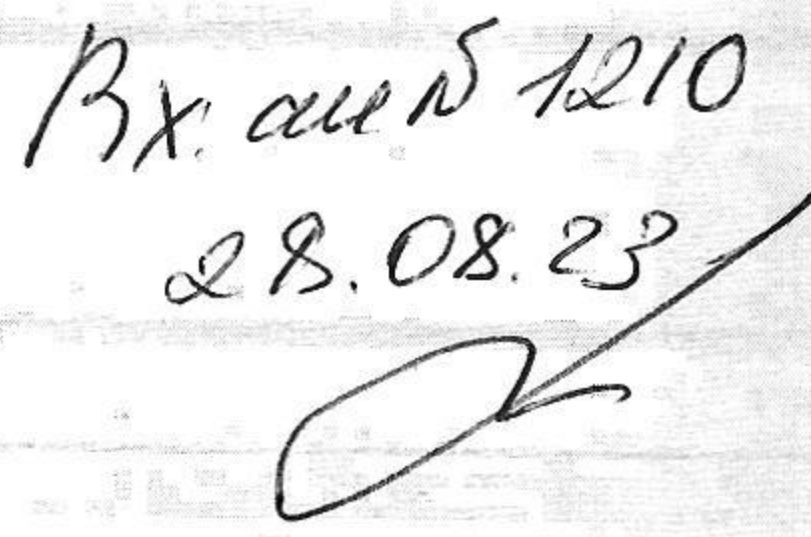 Вх. № 1210
28.08.23